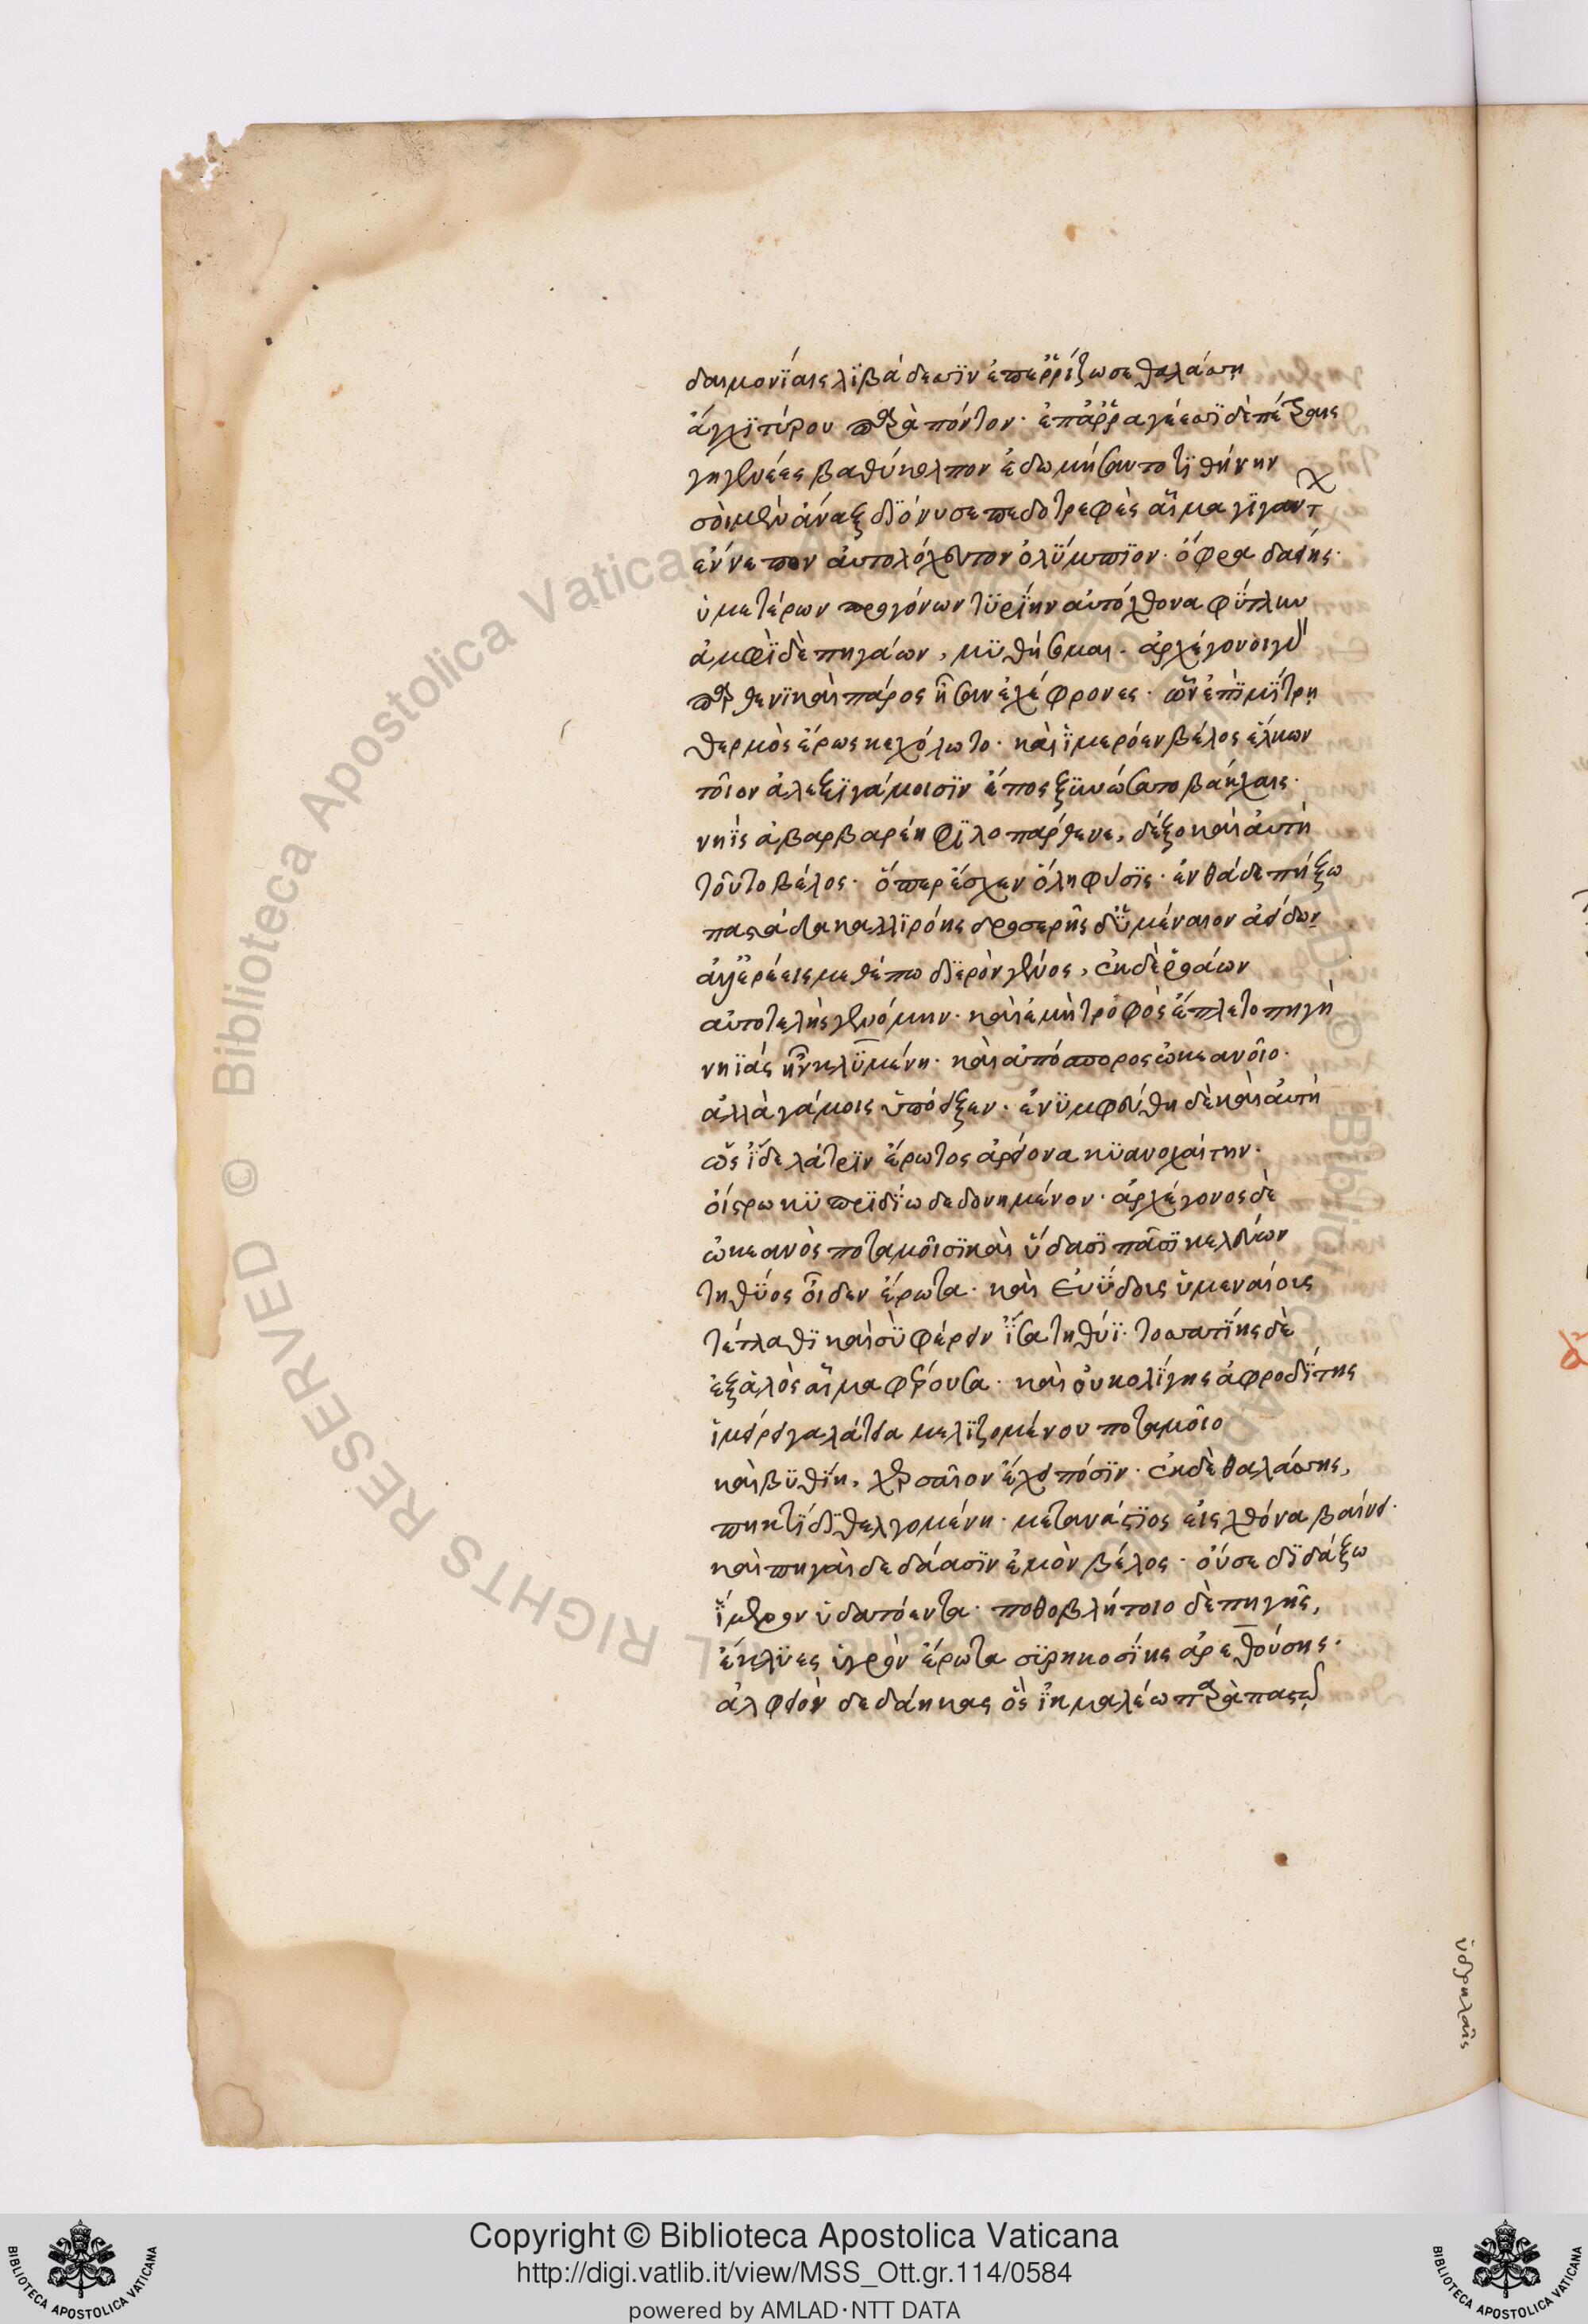 δαιμονίαις λιβάδεσσιν ἐπερρίζωσε θαλάσση
ἄγχι τύρου παρὰ πόντον· ἐπαρραγέεσσι δὲ πέτραις
γηγενέες βαθύκολπον ἐδωμήσαντο τιθήνην
σοὶ μὲν ἄναξ διόνυσε πεδοτρεφὲς αἷμα γιγάντων
ἔννεπον αὐτολόχευτον ὀλύμπιον· ὄφρα δαείης·
ὑμετέρων προγόνων τυρίην αὐτόχθονα φύτλην
ἀμφὶ δὲ πηγάων, μυθήσομαι· ἀρχέγονοι γὰρ
παρθενικαὶ πάρος ἦσαν ἐχέφρονες· ὧν ἐπὶ μίτρη
θερμὸς ἔρως κεχόλωτο· καὶ ἱμερόεν βέλος ἕλκων
τοῖον ἀλεξιγάμοισιν ἔπος ξυνώσατο βάκχαις·
νηῒς ἀβαρβαρέη φιλοπάρθενε, δέξο καὶ αὐτὴ
τοῦτο βέλος· ὅπερ ἔσχεν ὅλη φύσις· ἐνθάδε πήξω
παστάδα καλλιρόης δροσερῆς δ' ὑμέναιον ἀείδων
αὐτοτελὴς γενόμην· καὶ ἐμὴ τροφὸς ἔπλετο πηγή
νηϊὰς ἦν κλυμένη· καὶ ἀπόσπορος ὠκεανοῖο·
ἀλλὰ γάμοις ὑπόειξεν· ἐνυμφεύθη δὲ καὶ αὐτὴ
ὡς ἴδε λάτριν ἔρωτος ἀρείονα κυανοχαίτην·
οἴστρω κυπριδίω δεδονημένον· ἀρχέγονος δὲ
ὠκεανὸς ποταμοῖσι καὶ ὕδασι πᾶσι κελεύων
τηθύος οἶδεν ἔρωτα· καὶ εὐύδροις ὑμεναίοις
τέτλαθι καὶ σὺ φέρειν ἴσα τηθύϊ· τοσσατίης δὲ
ἐξ ἁλὸς αἷμα φέρουσα· καὶ οὐκ ὀλίγης ἀφροδίτης
ἱμείρει γαλάτεια μελιζομένου ποταμοῖο
καὶ βυθίη, χερσαῖον ἔχει πόσιν· ἐκ δὲ θαλάσσης,
πηκτίδι θελγομένη· μετανάστιος εἰς χθόνα βαίνει·
καὶ πηγαὶ δεδάασιν ἐμὸν βέλος· οὔ σε διδάξω
ἵμερον ὑδατόεντα· ποθοβλήτοιο δὲ πηγῆς,
ἔκλυες ὑγρὸν ἔρωτα συρηκοσίης ἀρεθούσης·
ἀλφειὸν δεδάηκας ὃς ἰκμαλέω παρὰ παστῶ
ὑδρηλαῖς
Copyright © Biblioteca Apostolica Vaticana
http://digi.vatlib.it/view/MSS_Ott.gr.114/0584
powered by AMLAD·NTT DATA